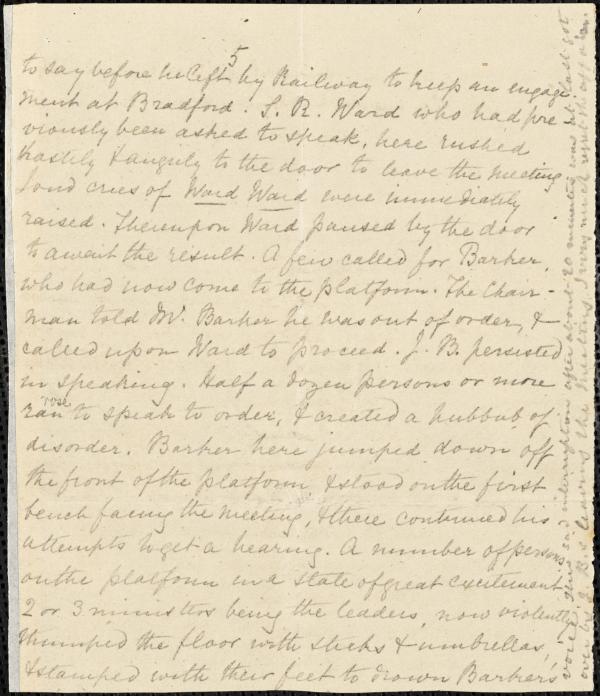 to say before he left 5 by Railway to keep an engage
ment at Bradford. S. R. Ward who had pre
viously been asked to speak, here rushed
hastily & angrily to the door to leave the meeting
loud cries of Ward Ward were immediately
raised. Thereupon Ward paused by the door
to await the result. A few called for Barker,
who had now come to the platform. The Chair-
man told Mr. Barker he was out of order, &
called upon Ward to proceed. J. B. persisted
in speaking. Half a dozen persons or more
rose
ran to speak to order, & created a hubbub of
disorder. Barker here jumped down off
the front of the platform & stood on the first
bench facing the meeting, & there continued his
attempts to get a hearing. A number of persons
on the platform in a state of great excitement
2 or 3 ministers being the leaders, now violently
thumped the floor with sticks & umbrellas,
& stamped with their feet to drown Barker's
voice. This sad interruption after about 20 minutes was at last got
over by J. B.'s leaving the Meeting. I very much regret the affair.